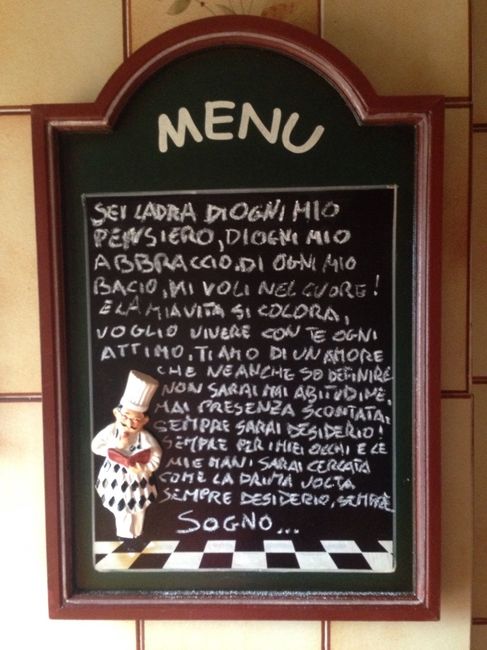 MENU
SEI LADRA DI OGNI MIO
PENSIERO, DI OGNI MIO
ABBRACCIO. DI OGNI MIO
BACIO, MI VOLI NEL CUORE!
E LA MIA VITA SI COLORA,
VOGLIO VIVERE CON TE OGNI
ATTIMO, TI AMO DI UN AMORE
CHE NEANCHE SO DEFINIRE
NON SARAI MAI ABITUDINE,
MAI PRESENZA SCONTATA,
SEMPRE SARAI DESIDERIO!
SEMPRE PER I MIEI OCCHI E LE
MIE MANI SARAI CERCATA
COME LA PRIMA VOLTA
SEMPRE DESIDERIO, SEMPRE
SOGNO...